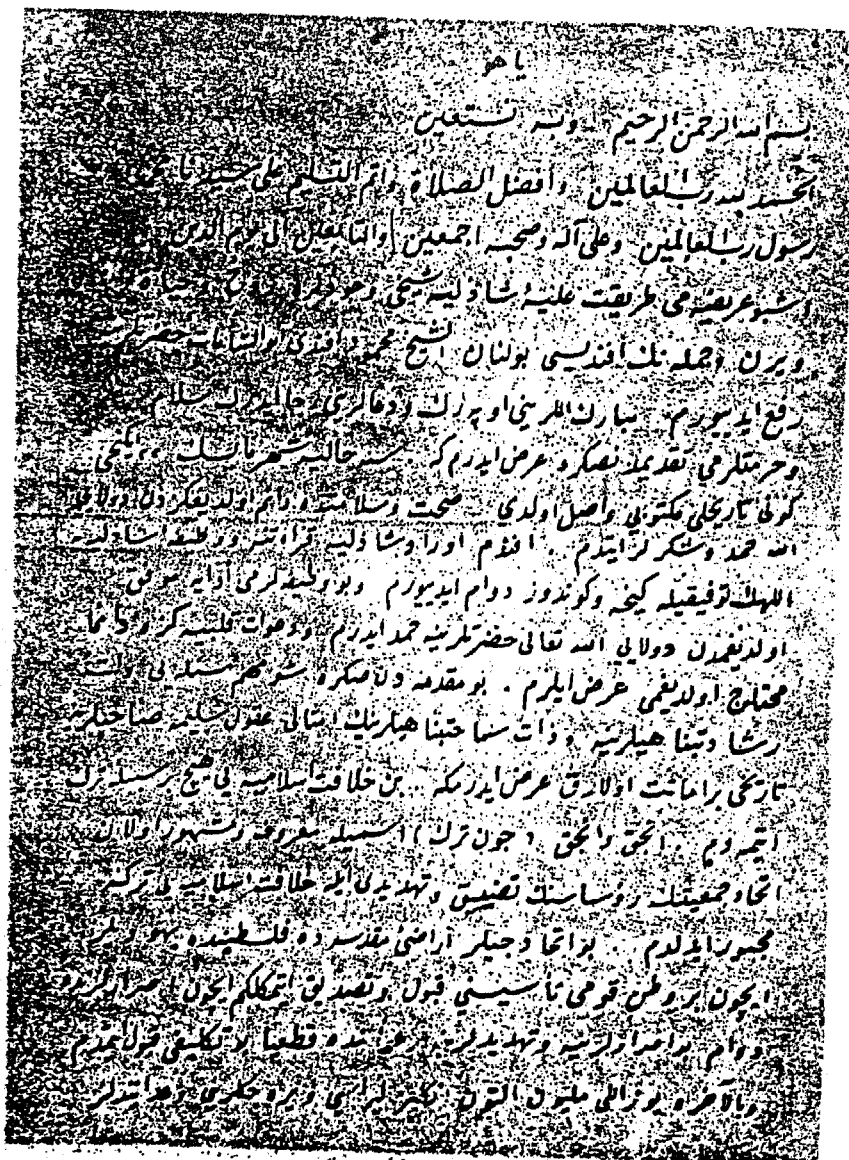 يا هو
بسم الله الرحمن الرحيم وبه نستعين
الحمد لله رب العالمين وأفضل الصلاة وأتم التسليم على سيدنا محمد
رسول رب العالمين وعلى آله وصحبه اجمعين والتابعين الى يوم الدين
اشبو عريضه مى طريقت عليهٔ شاذليه شيخى وجودلره روح و حياة
ويرن وجمله نك افنديسى بولنان الشيخ محمود افندى ابو الشامات حضرتلرينه
رفع ايديورم مبارك اللرينى اوپه رك ودعالرينى رجا ايده رك سلام
وحرمتلرمى تقديمدنصكره عرض ايدرم كه سنه حاليه شهر مايسك ايكنجى
كونى تاريخلى مكتوبى واصل اولدى صحت وسلامتده دائم اولديغكزدن دولايى
الله حمد وشكرلر ايتدم . افندم اوراد شاذليه قرائتنه ووظيفهٔ شاذليه
اللهك توفيقيله كيجه وكوندوز دوام ايديورم وبو وظيفه لرمى أدايه موفق
اولديغمدن دولايى الله تعالى حضرتلرينه حمد ايدرم ودعوات قلبيه كزه دائما
محتاج اولديغمى عرض ايلرم . بو مقدمه دن صكره شو مهم مسئله يى ذات
رشادتپناهيلرينه و ذات سماحتپناهيلرينك امثالى عقول سليمه صاحبلرينه
تاريخى بر امانت اولارق عرض ايدرمكه بن خلافت اسلاميه يى هيچ بر سببله ترك
ايتمه دم . انجق وانجق (جون ترك) اسميله معروف ومشهور اولان
اتحاد جمعيتنك رؤساسنك تضييق وتهديدى ايله خلافت اسلاميه يى تركه
مجبور ايدلدم . بو اتحادجيلر اراضئ مقدسه ده فلسطينده يهوديلر
ايچون بر وطن قومى تأسيسنى قبول وتصديق ايتمكلكم ايچون اصرارلرنده
دوام بو اصرارلرينه وتهديدلرينه رغما بنده قطعيا بو تكليفى قبول ايتمدم
وبالآخره يوز اللى مليون التون انكليز ليراسى ويره جكلرينى وعد ايتديلر